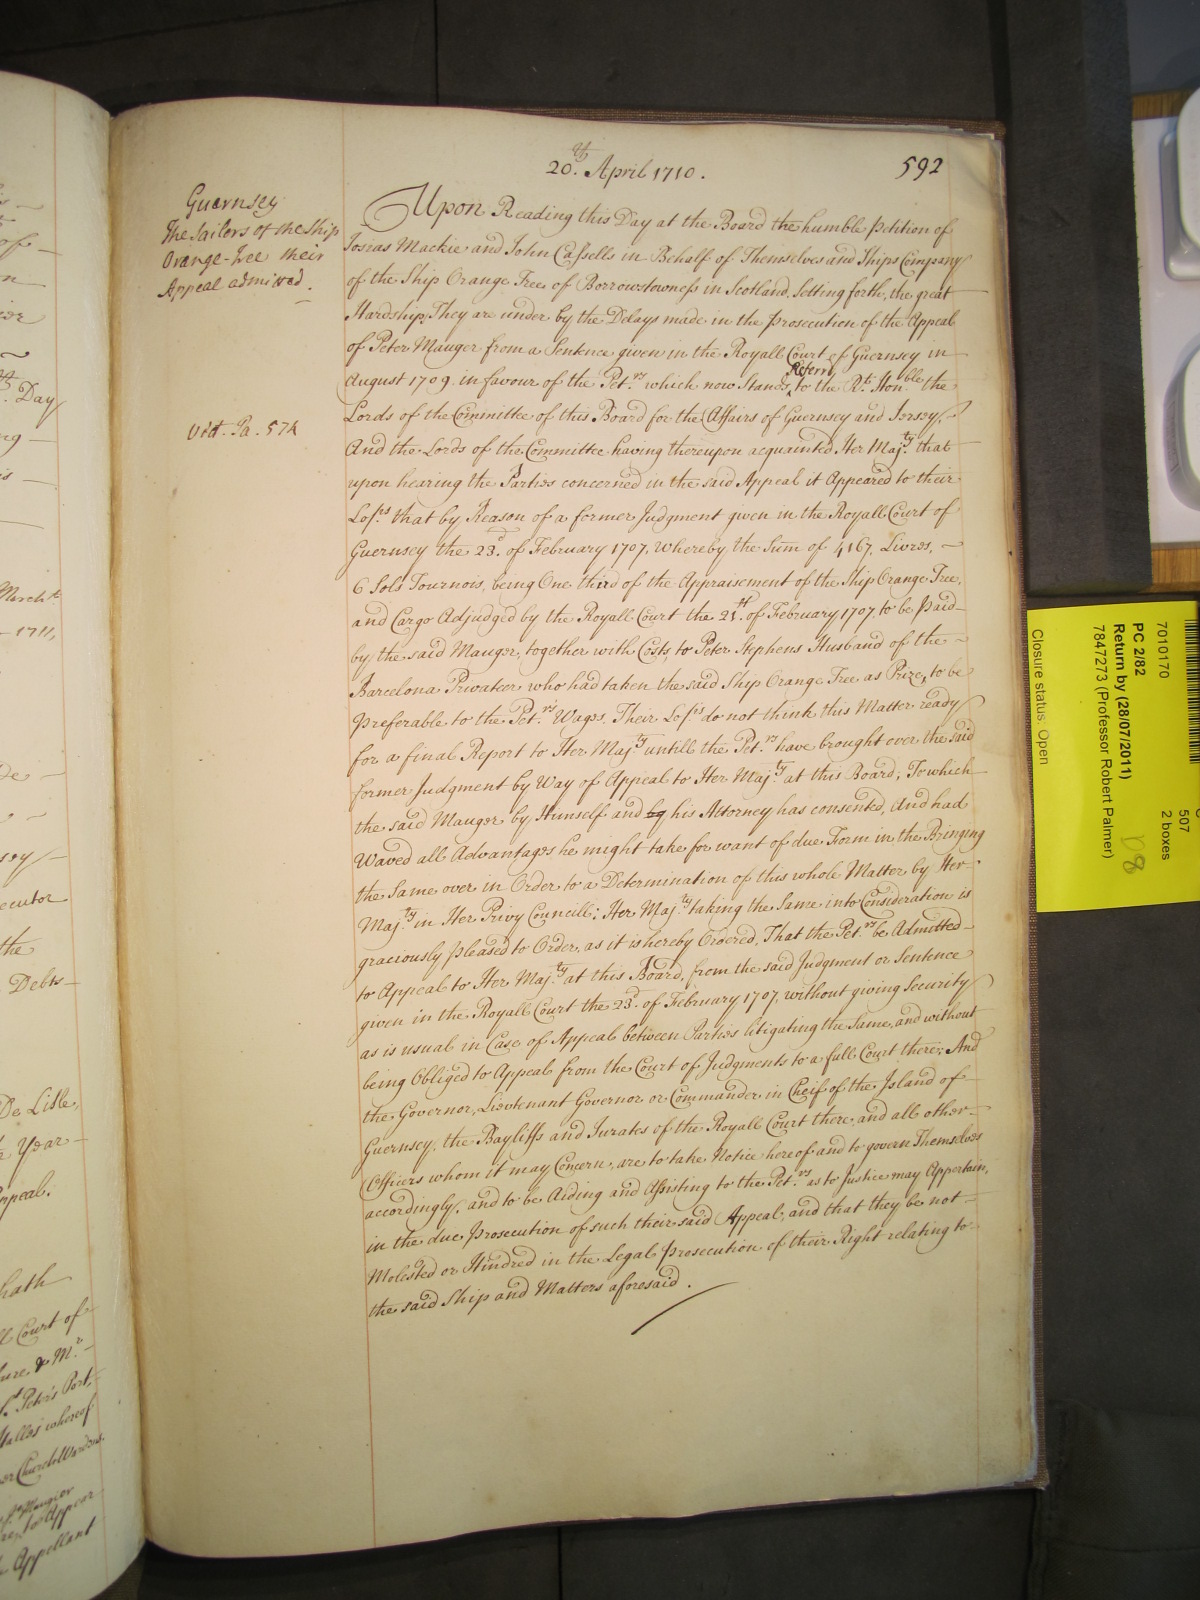 20th. April 1710.
592
Guernsey
The Sailors of the Ship
Orange-tree their
Appeal admitted.
Vid. Pa. 574
Upon Reading this Day at the Board the humble Petition of
Josias Mackie and John Cassells in Behalf of Themselves and Ships Company
of the Ship Orange Tree of Borrowstowness in Scotland, Setting forth, the great
Hardship They are under by the Delays made in the Prosecution of the Appeal
of Peter Mauger from a Sentence given in the Royall Court of Guernsey in
August 1709. in favour of the Pet.rs which now Stands Referrd to the Rt. Honble the
Lords of the Committee of this Board for the Affairs of Guernsey and Jersey,
And the Lords of the Committee having thereupon acquainted Her Maj.ty that
upon hearing the Parties concerned in the said Appeal it Appeared to their
Lops that by Reason of a former Judgment given in the Royall Court of
Guernsey the 23d. of February 1707, whereby the Sum of 4167. Livres,
6 Sols Tournois, being One third of the Appraisement of the Ship Orange Tree,
and Cargo Adjudged by the Royall Court the 21st. of February 1707, to be Paid
by the said Mauger, together with Costs, to Peter Stephens Husband of the
Barcelona Privateer who had taken the said Ship Orange Tree as Prize, to be
Preferable to the Pet.rs Wages, Their Lops do not think this Matter ready
for a final Report to Her Maj.ty untill the Pet.rs have brought over the said
former Judgment by Way of Appeal to Her Maj.ty at this Board; To which
the said Mauger by Himself and by his Attorney has consented, And had
Waved all Advantages he might take for want of due Form in the Bringing
the Same over in Order to a Determination of this whole Matter by Her
Maj.ty in Her Privy Councill; Her Maj.ty taking the Same into Consideration is
graciously pleased to Order, as it is hereby Ordered, That the Pet.rs be Admitted
to Appeal to Her Maj.ty at this Board, from the said Judgment or Sentence
given in the Royall Court the 23d. of February 1707, without giving Security
as is usual in Case of Appeal between Parties litigating the Same, and without
being Obliged to Appeal from the Court of Judgments to a full Court there; And
the Governor, Lieutenant Governor or Commander in Cheif of the Island of
Guernsey, the Bayliffs and Jurates of the Royall Court there, and all other
Officers whom it may Concern, are to take Notice hereof and to govern Themselves
accordingly, and to be Aiding and Assisting to the Pet.rs as to Justice may Appertain,
in the due Prosecution of such their said Appeal, and that they be not
Molested or Hindred in the Legal Prosecution of their Right relating to
the said Ship and Matters aforesaid.
of
Day
March
1711,
ecutor
the
Debts
De Lisle,
Year
Appeal.
hath
Court of
ure & Mr.
Peter's Port,
whereof
Appellant
7010170
PC 2/82
Return by (28/07/2011)
7847273 (Professor Robert Palmer)
Closure status: Open
507
2 boxes